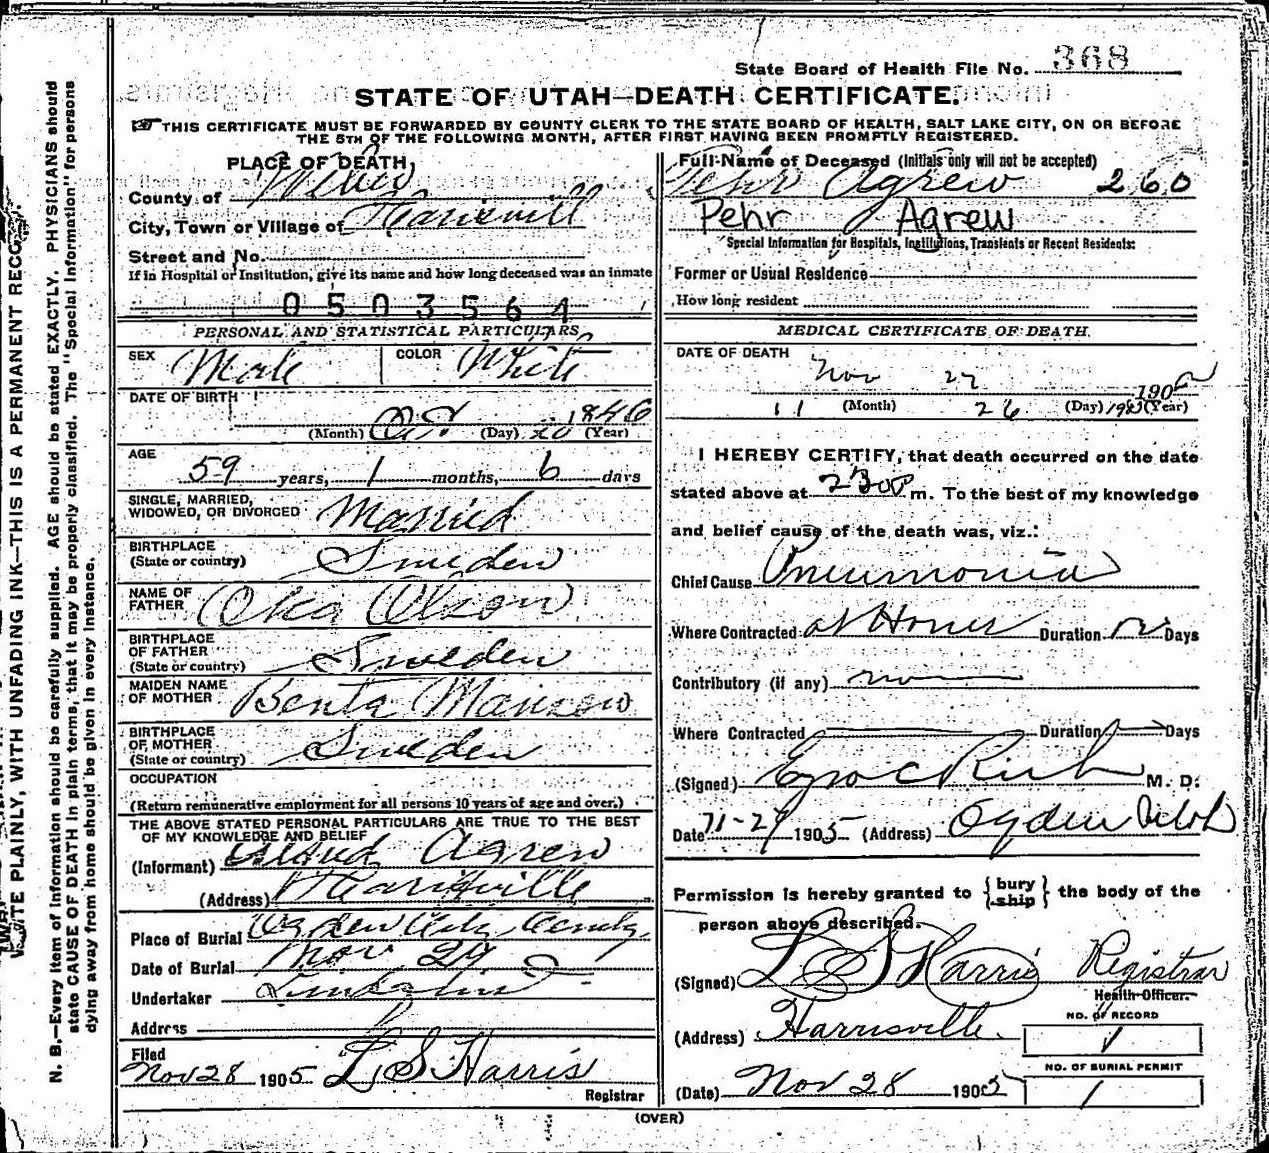 State Board of Health File No. 368
STATE OF UTAH—DEATH CERTIFICATE.
THIS CERTIFICATE MUST BE FORWARDED BY COUNTY CLERK TO THE STATE BOARD OF HEALTH, SALT LAKE CITY, ON OR BEFORE
THE 5TH OF THE FOLLOWING MONTH, AFTER FIRST HAVING BEEN PROMPTLY REGISTERED.
WRITE PLAINLY, WITH UNFADING INK—THIS IS A PERMANENT RECO
N. B.—Every item of information should be carefully supplied. AGE should be stated EXACTLY. PHYSICIANS should
state CAUSE OF DEATH in plain terms, that it may be properly classified. The "Special Information" for persons
dying away from home should be given in every instance.
PLACE OF DEATH,
County of Weber
City, Town or Village of
Street and No.
If in Hospital or Institution, give its name and how long deceased was an inmate
0503564
PERSONAL AND STATISTICAL PARTICULARS
SEX Male COLOR White
DATE OF BIRTH
Oct 20 1846
(Month) (Day) (Year)
AGE
59 years, 1 months, 6 days
SINGLE, MARRIED,
WIDOWED, OR DIVORCED Married
BIRTHPLACE
(State or country) Sweden
NAME OF
FATHER Oka Olson
BIRTHPLACE
OF FATHER
(State or country) Sweden
MAIDEN NAME
OF MOTHER Benta
BIRTHPLACE
OF MOTHER
(State or country) Sweden
OCCUPATION
(Return remunerative employment for all persons 10 years of age and over.)
THE ABOVE STATED PERSONAL PARTICULARS ARE TRUE TO THE BEST
OF MY KNOWLEDGE AND BELIEF
(Informant) Agren
(Address)
Place of Burial Ogden City
Date of Burial Nov 29
Undertaker Lindquist
Address
Filed
Nov 28 1905 L S Harris
Registrar
Full Name of Deceased (Initials only will not be accepted)
Pehr Agrew 260
Pehr Agrew
Special Information for Hospitals, Institutions, Transients or Recent Residents:
Former or Usual Residence
How long resident
MEDICAL CERTIFICATE OF DEATH.
DATE OF DEATH
Nov 27 1905
11 (Month) 26 (Day) 1905 (Year)
I HEREBY CERTIFY, that death occurred on the date
stated above at m. To the best of my knowledge
and belief cause of the death was, viz.:
Chief Cause Pneumonia
Where Contracted at Home Duration 12 Days
Contributory (if any) no
Where Contracted Duration Days
(Signed) Ezra C Rich M. D.
Date 11-27 1905 (Address) Ogden Utah
Permission is hereby granted to {bury
ship} the body of the
person above described.
(Signed) L S Harris Registrar
Health Officer.
(Address) Harrisville
(Date) Nov 28 1905
NO. OF RECORD
1
NO. OF BURIAL PERMIT
1
(OVER)